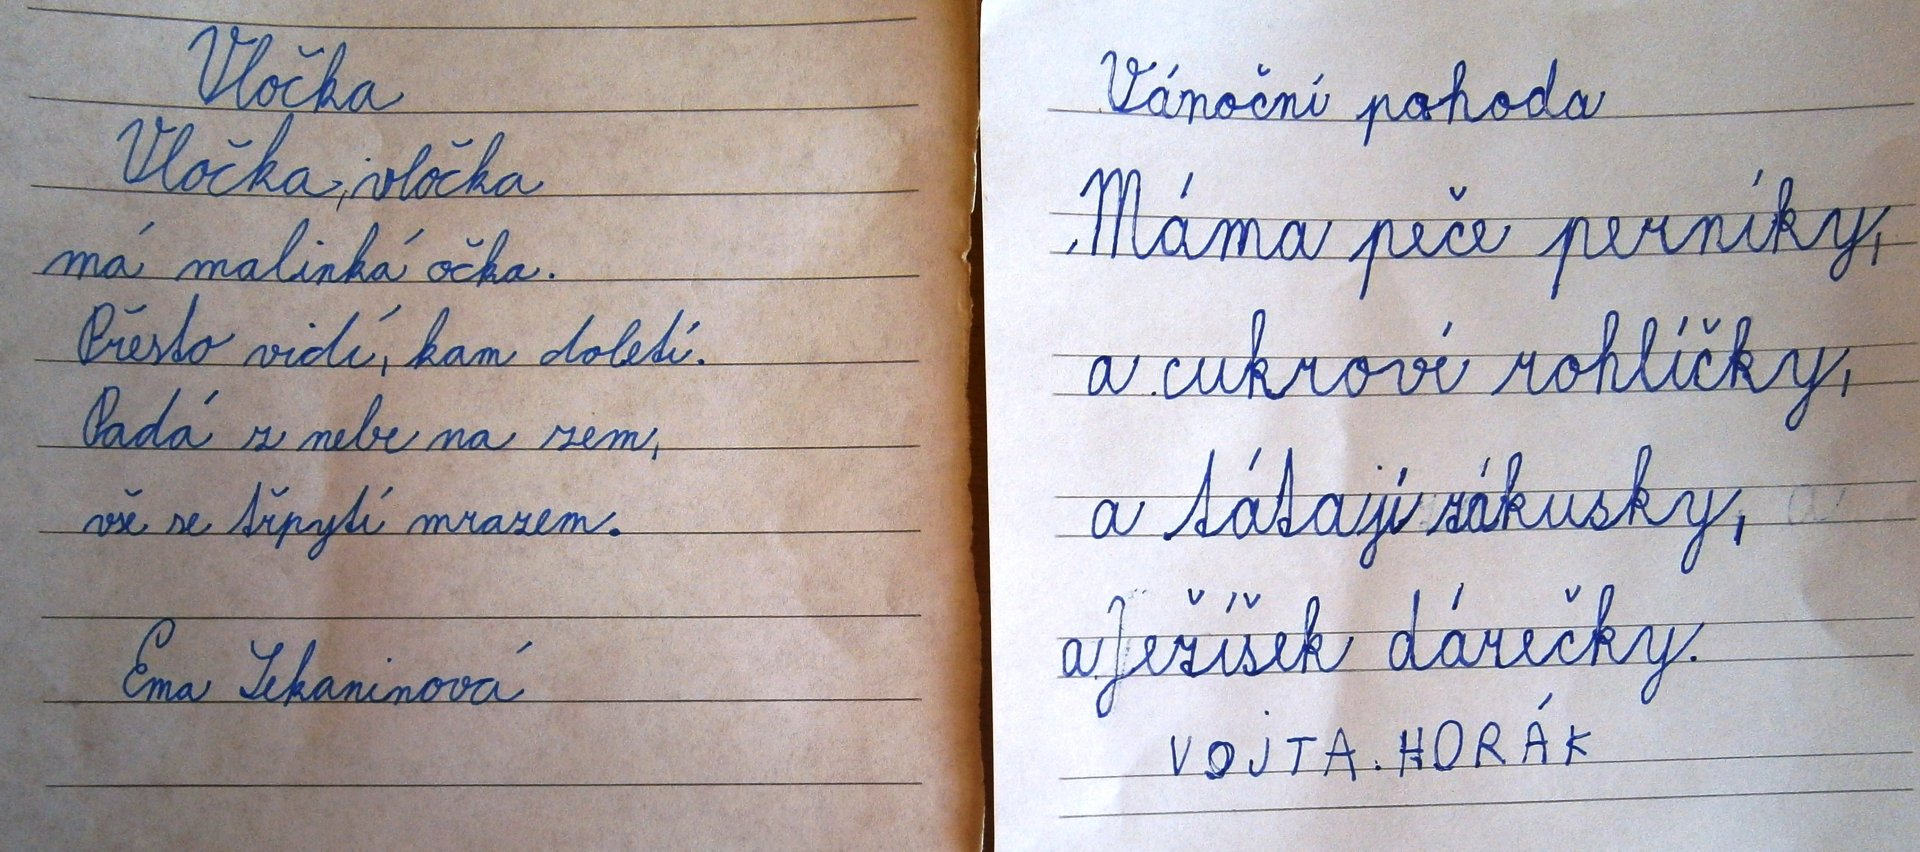 Vločka
Vločka, vločka
má malinká očka.
Přesto vidí, kam doletí.
Padá z nebe na zem,
vše se třpytí mrazem.
Ema Sekaninová
Vánoční pohoda
Máma peče perníky,
a cukrové rohlíčky,
a táta jí zákusky,
a Ježíšek dárečky.
VOJTA.HORÁK